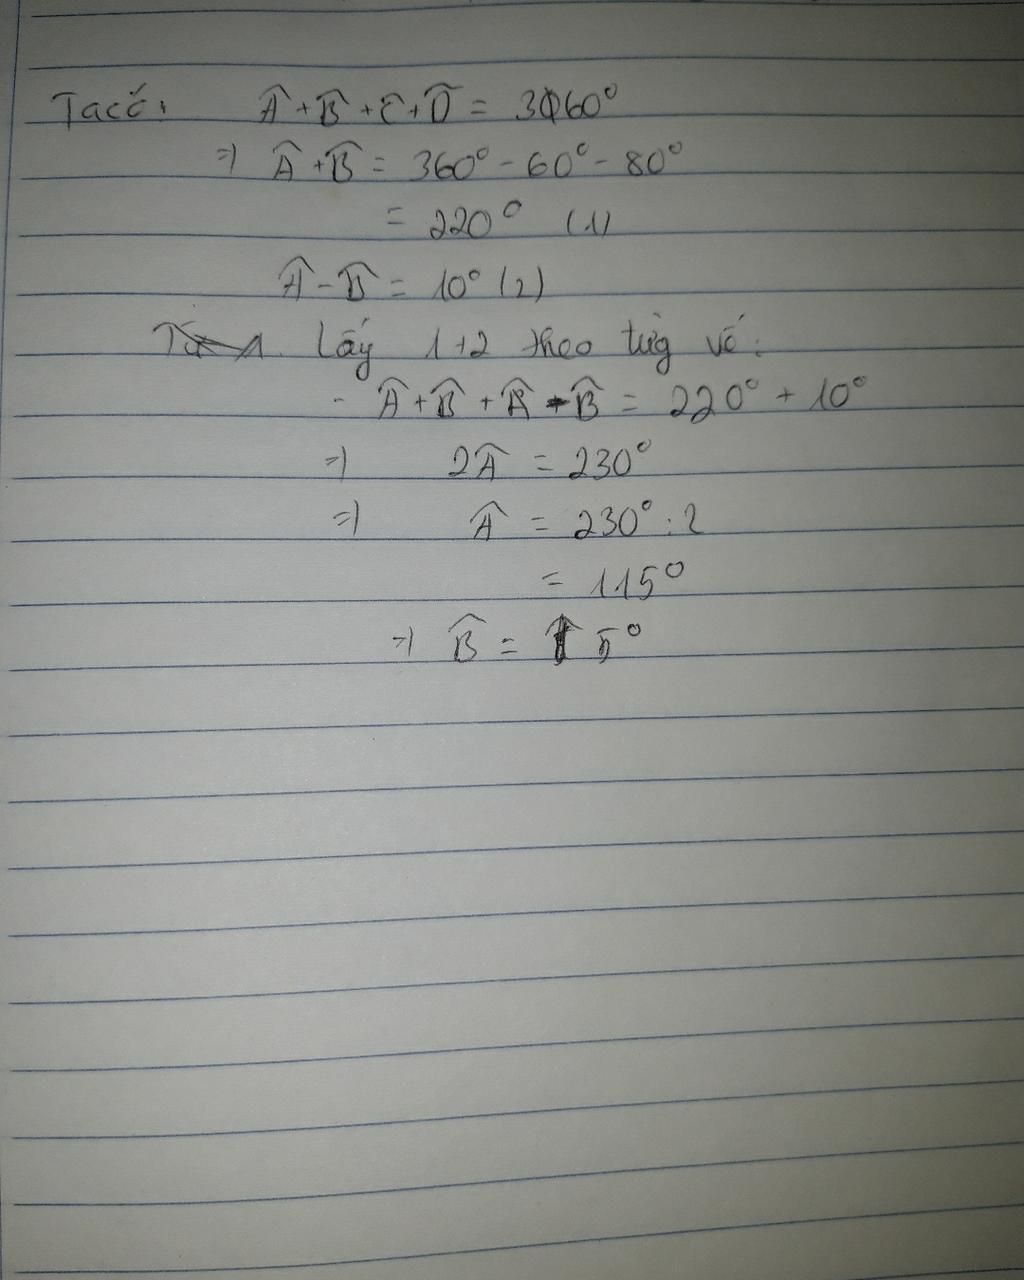 Ta có: Â + B̂ + Ĉ + D̂ = 360°
=> Â + B̂ = 360° - 60° - 80°
= 220° (1)
Â - B̂ = 10° (2)
Lấy 1+2 theo từg vế:
Â + B̂ + Â - B̂ = 220° + 10°
=> 2Â = 230°
=> Â = 230° : 2
= 115°
=> B̂ = 5°